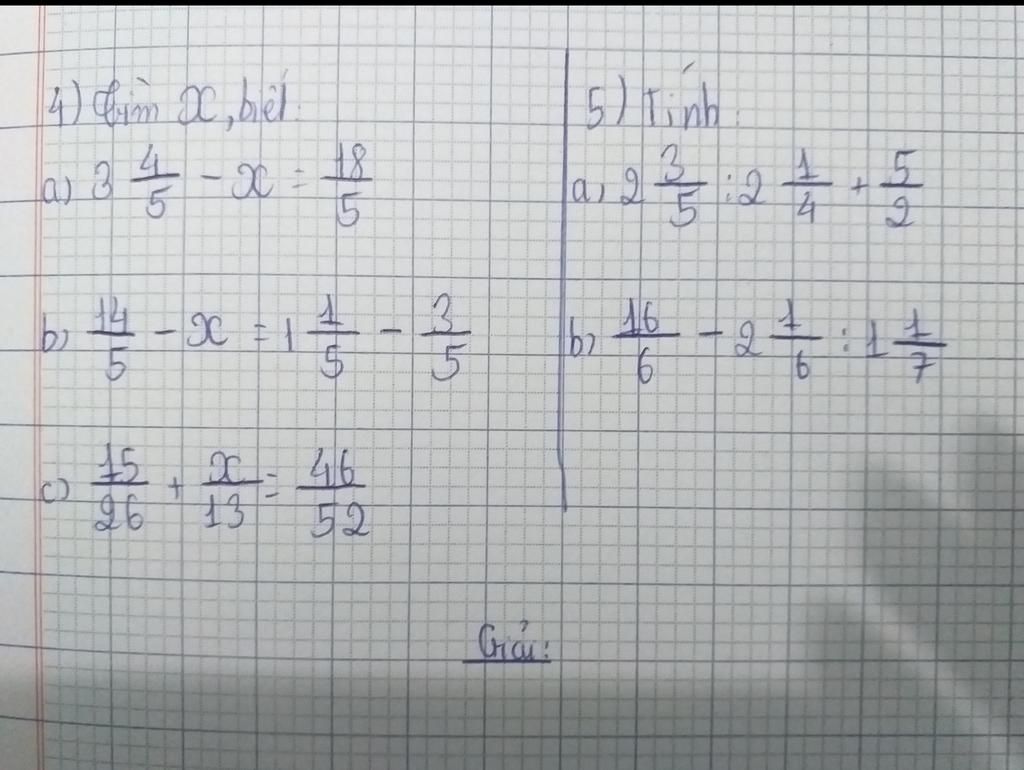 4) Tìm x, biết:
a) 3 4/5 - x = 18/5
b) 14/5 - x = 1 1/5 - 3/5
c) 15/26 + x/13 = 46/52
5) Tính:
a) 2 3/5 : 2 1/4 + 5/2
b) 16/6 - 2 1/6 : 1 1/7
Giải: